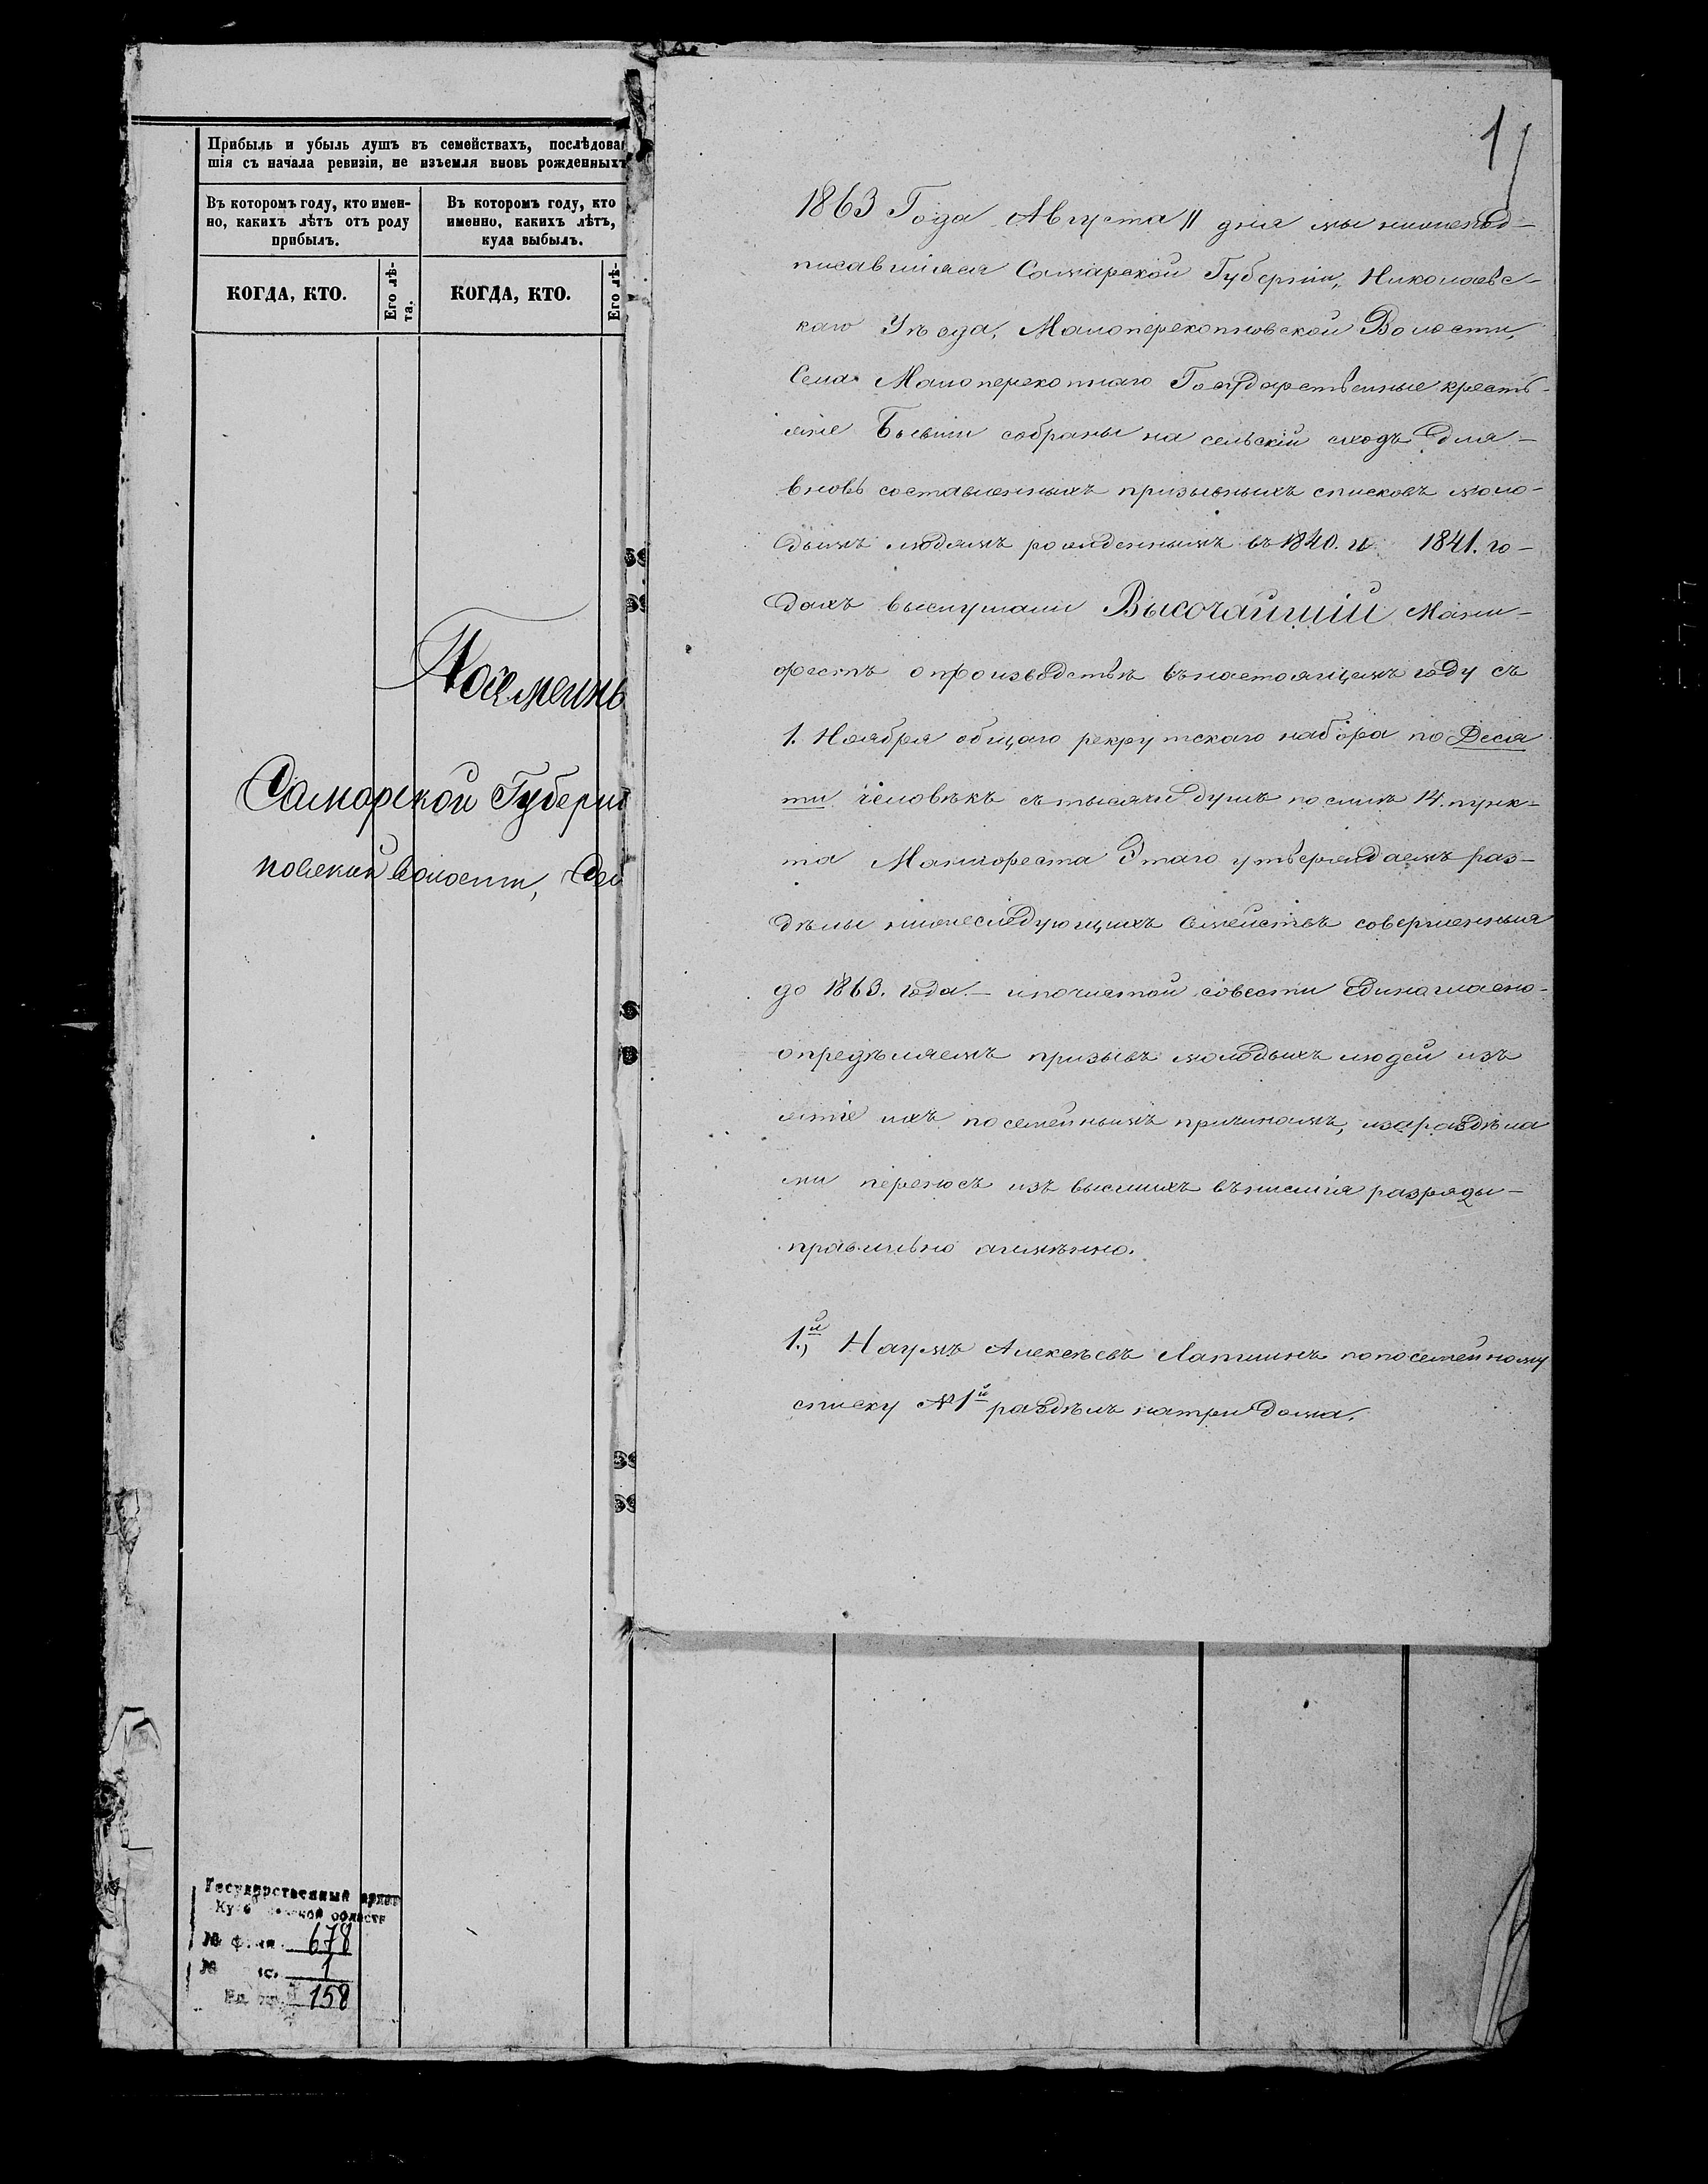 Прибыль и убыль душъ въ семействахъ, послѣдова
шія съ начала ревизіи, не изъемля вновь рожденныхъ
Въ которомъ году, кто имен-
но, какихъ лѣтъ отъ роду
прибылъ.
Въ которомъ году, кто
именно, какихъ лѣтъ,
куда выбылъ.
КОГДА, КТО.
Его лѣ-
та.
КОГДА, КТО.
Его лѣ-
Самарской Губерні
повской волости,
Государственный архив
ской области
678
1
158
1
1863 Года Августа 11 дня мы нижепод-
писавшіяся Самарской Губерніи, Николаевс-
каго Уѣзда, Малоперекопновской Волости,
Села Малоперекопнаго Государственные кресть-
яне Бывши собраны на сельскій сходъ для-
вновь составленныхъ призывныхъ списковъ моло-
дымъ людямъ рожденнымъ въ 1840. и 1841. го-
дахъ выслушали Высочайшій Мани-
фестъ о производствѣ въ настоящемъ году съ
1. Ноября общаго рекрутскаго набора по Деся
ти человѣкъ съ тысячи душъ по силѣ 14. пунк-
та Манифеста Этаго утверждаемъ раз-
дѣлы нижеслѣдующихъ семействъ совершенныя
до 1863. года. - и по чистой совести Единагласно-
опредѣляемъ призывъ молодыхъ людей изъ
ятіе ихъ по семейнымъ причинамъ, иза раздѣла
ми переносъ изъ высшихъ въ нисшія разряды-
правильно аимѣнно.
1.й, Наумъ Алексѣевъ Лапшинъ по посемейному
списку №1й раздѣлъ на три дома.